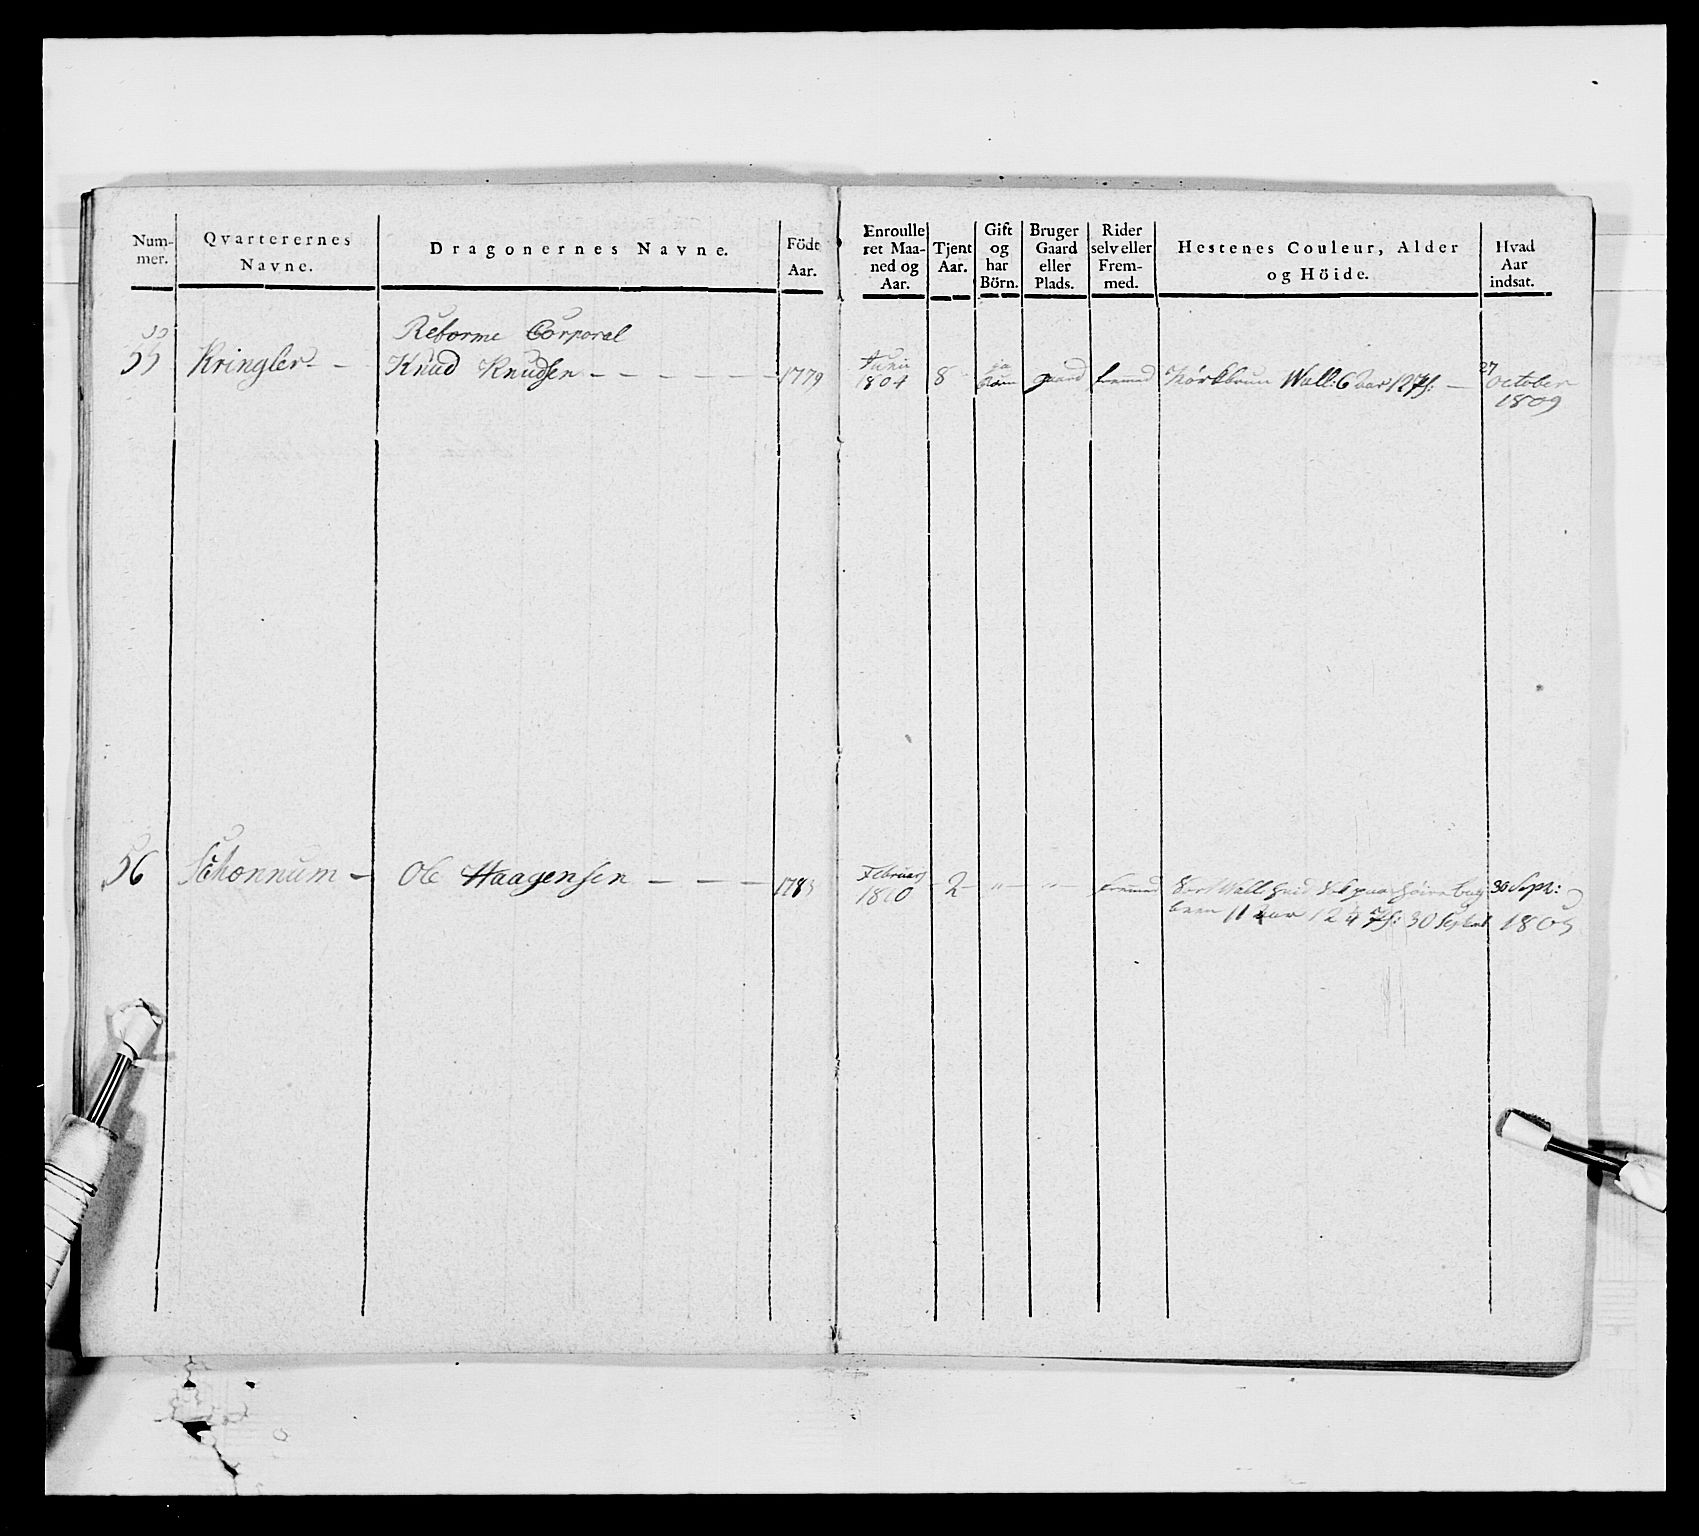 Num-
mer.
Qvarterernes
Navne.
Dragonernes Navne.
Födt
Aar.
Enroulle
ret Maa-
ned og
Aar.
Tjent
Aar.
Gift
og
har
Börn.
Bruger
Gaard
eller
Plads.
Rider
selv eller
Frem-
med.
Hestenes Couleur, Alder
og Höide.
Hvad
Aar
indsat.
Reforme Corporal
55 Kringler - - Knud Knudsen - - - - - - 1779
Junii
1804 8 ja gaard fremmed Mörkbrun Wall: 6 Aar 12 27
October
1809
56 Schonnum - Ole Haagensen - - - 1783
Februar
1810 - 2 - " - " - fremmed Sort Wall: hvid 30 Sept:
been 11 Aar 12 30 Septemb 1805